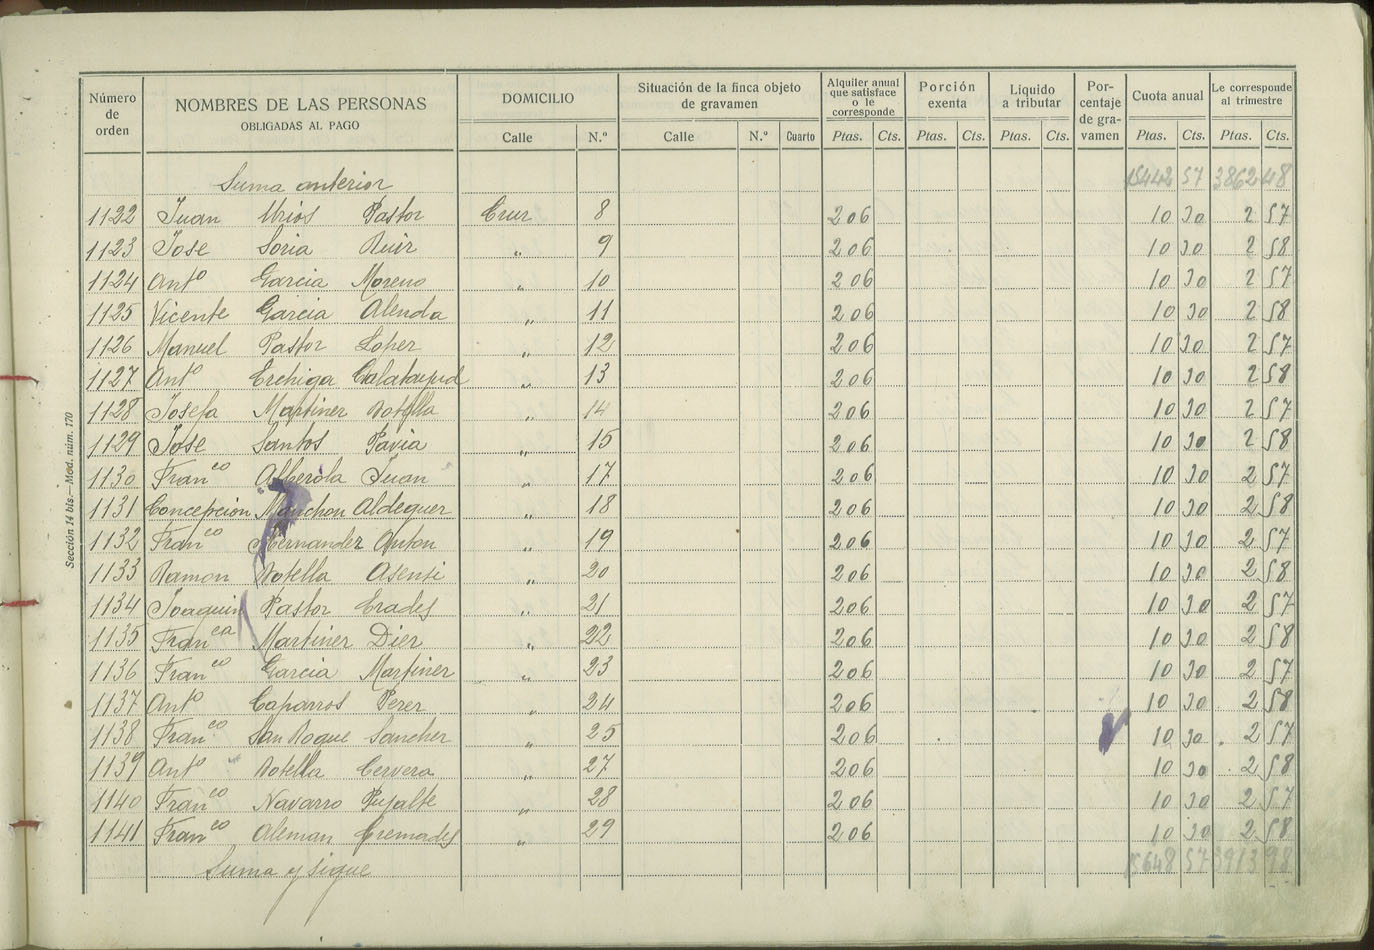 Número de orden | NOMBRES DE LAS PERSONAS OBLIGADAS AL PAGO | DOMICILIO | Situación de la finca objeto de gravamen | Alquiler anual que satisface o le corresponde | Porción exenta | Liquido a tributar | Porcentaje de gravamen | Cuota anual | Le corresponde al trimestre
Calle | N.º | Calle | N.º | Cuarto | Ptas. | Cts. | Ptas. | Cts. | Ptas. | Cts. | Ptas. | Cts. | Ptas. | Cts.
Suma anterior 15442 57 3862 48
1122 Juan Urios Pastor Cruz 8 206 10 30 2 57
1123 Jose Soria Ruiz " 9 206 10 30 2 58
1124 Antº Garcia Moreno " 10 206 10 30 2 57
1125 Vicente Garcia Alenda " 11 206 10 30 2 58
1126 Manuel Pastor Lopez " 12 206 10 30 2 57
1127 Antº Calatayud " 13 206 10 30 2 58
1128 Josefa Martinez Botella " 14 206 10 30 2 57
1129 Jose Santos Pavia " 15 206 10 30 2 58
1130 Franco Alberola Juan " 17 206 10 30 2 57
1131 Concepcion Manchon Aldeguer " 18 206 10 30 2 58
1132 Franco Hernandez Anton " 19 206 10 30 2 57
1133 Ramon Botella Asensi " 20 206 10 30 2 58
1134 Joaquin Pastor Crades " 21 206 10 30 2 57
1135 Franca Martinez Diez " 22 206 10 30 2 58
1136 Franco Garcia Martinez " 23 206 10 30 2 57
1137 Antº Caparros Perez " 24 206 10 30 2 58
1138 Franco San Roque Sanchez " 25 206 10 30 2 57
1139 Antº Botella Cervera " 27 206 10 30 2 58
1140 Franco Navarro Pujalte " 28 206 10 30 2 57
1141 Franco Aleman Cremades " 29 206 10 30 2 58
Suma y sigue 15648 57 3913 98
Sección 14 bis.—Mod. núm. 170